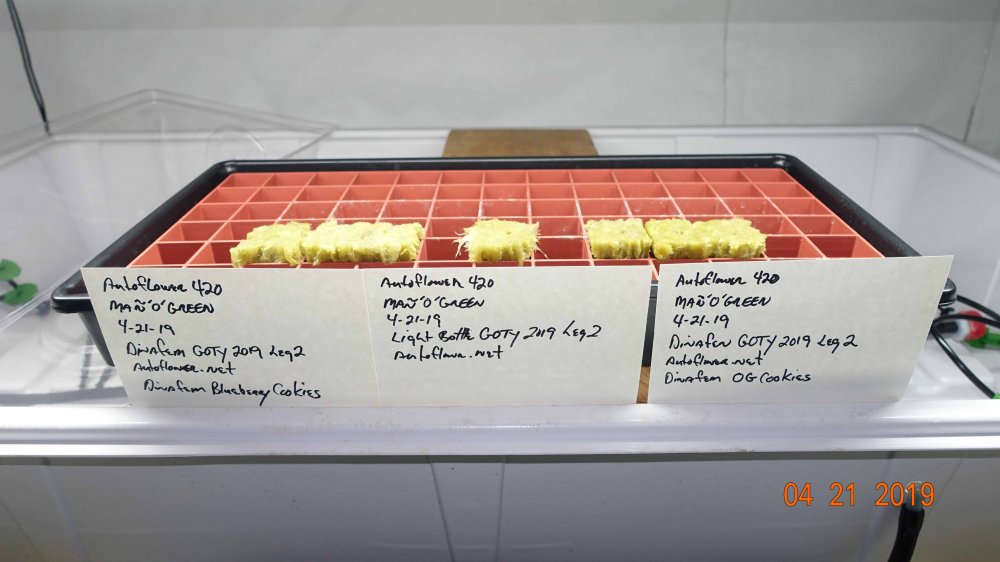 Autoflower 420
MAÑ'O'GREEN
4-21-19
Dinafem GOTY 2019 Leg 2
Autoflower.net
Dinafem Blueberry Cookies
Autoflower 420
MAÑ'O'GREEN
4-21-19
Light Bottle GOTY 2019 Leg 2
Autoflower.net
Autoflower 420
MAÑ'O'GREEN
4-21-19
Dinafem GOTY 2019 Leg 2
Autoflower.net
Dinafem OG Cookies
04 21 2019